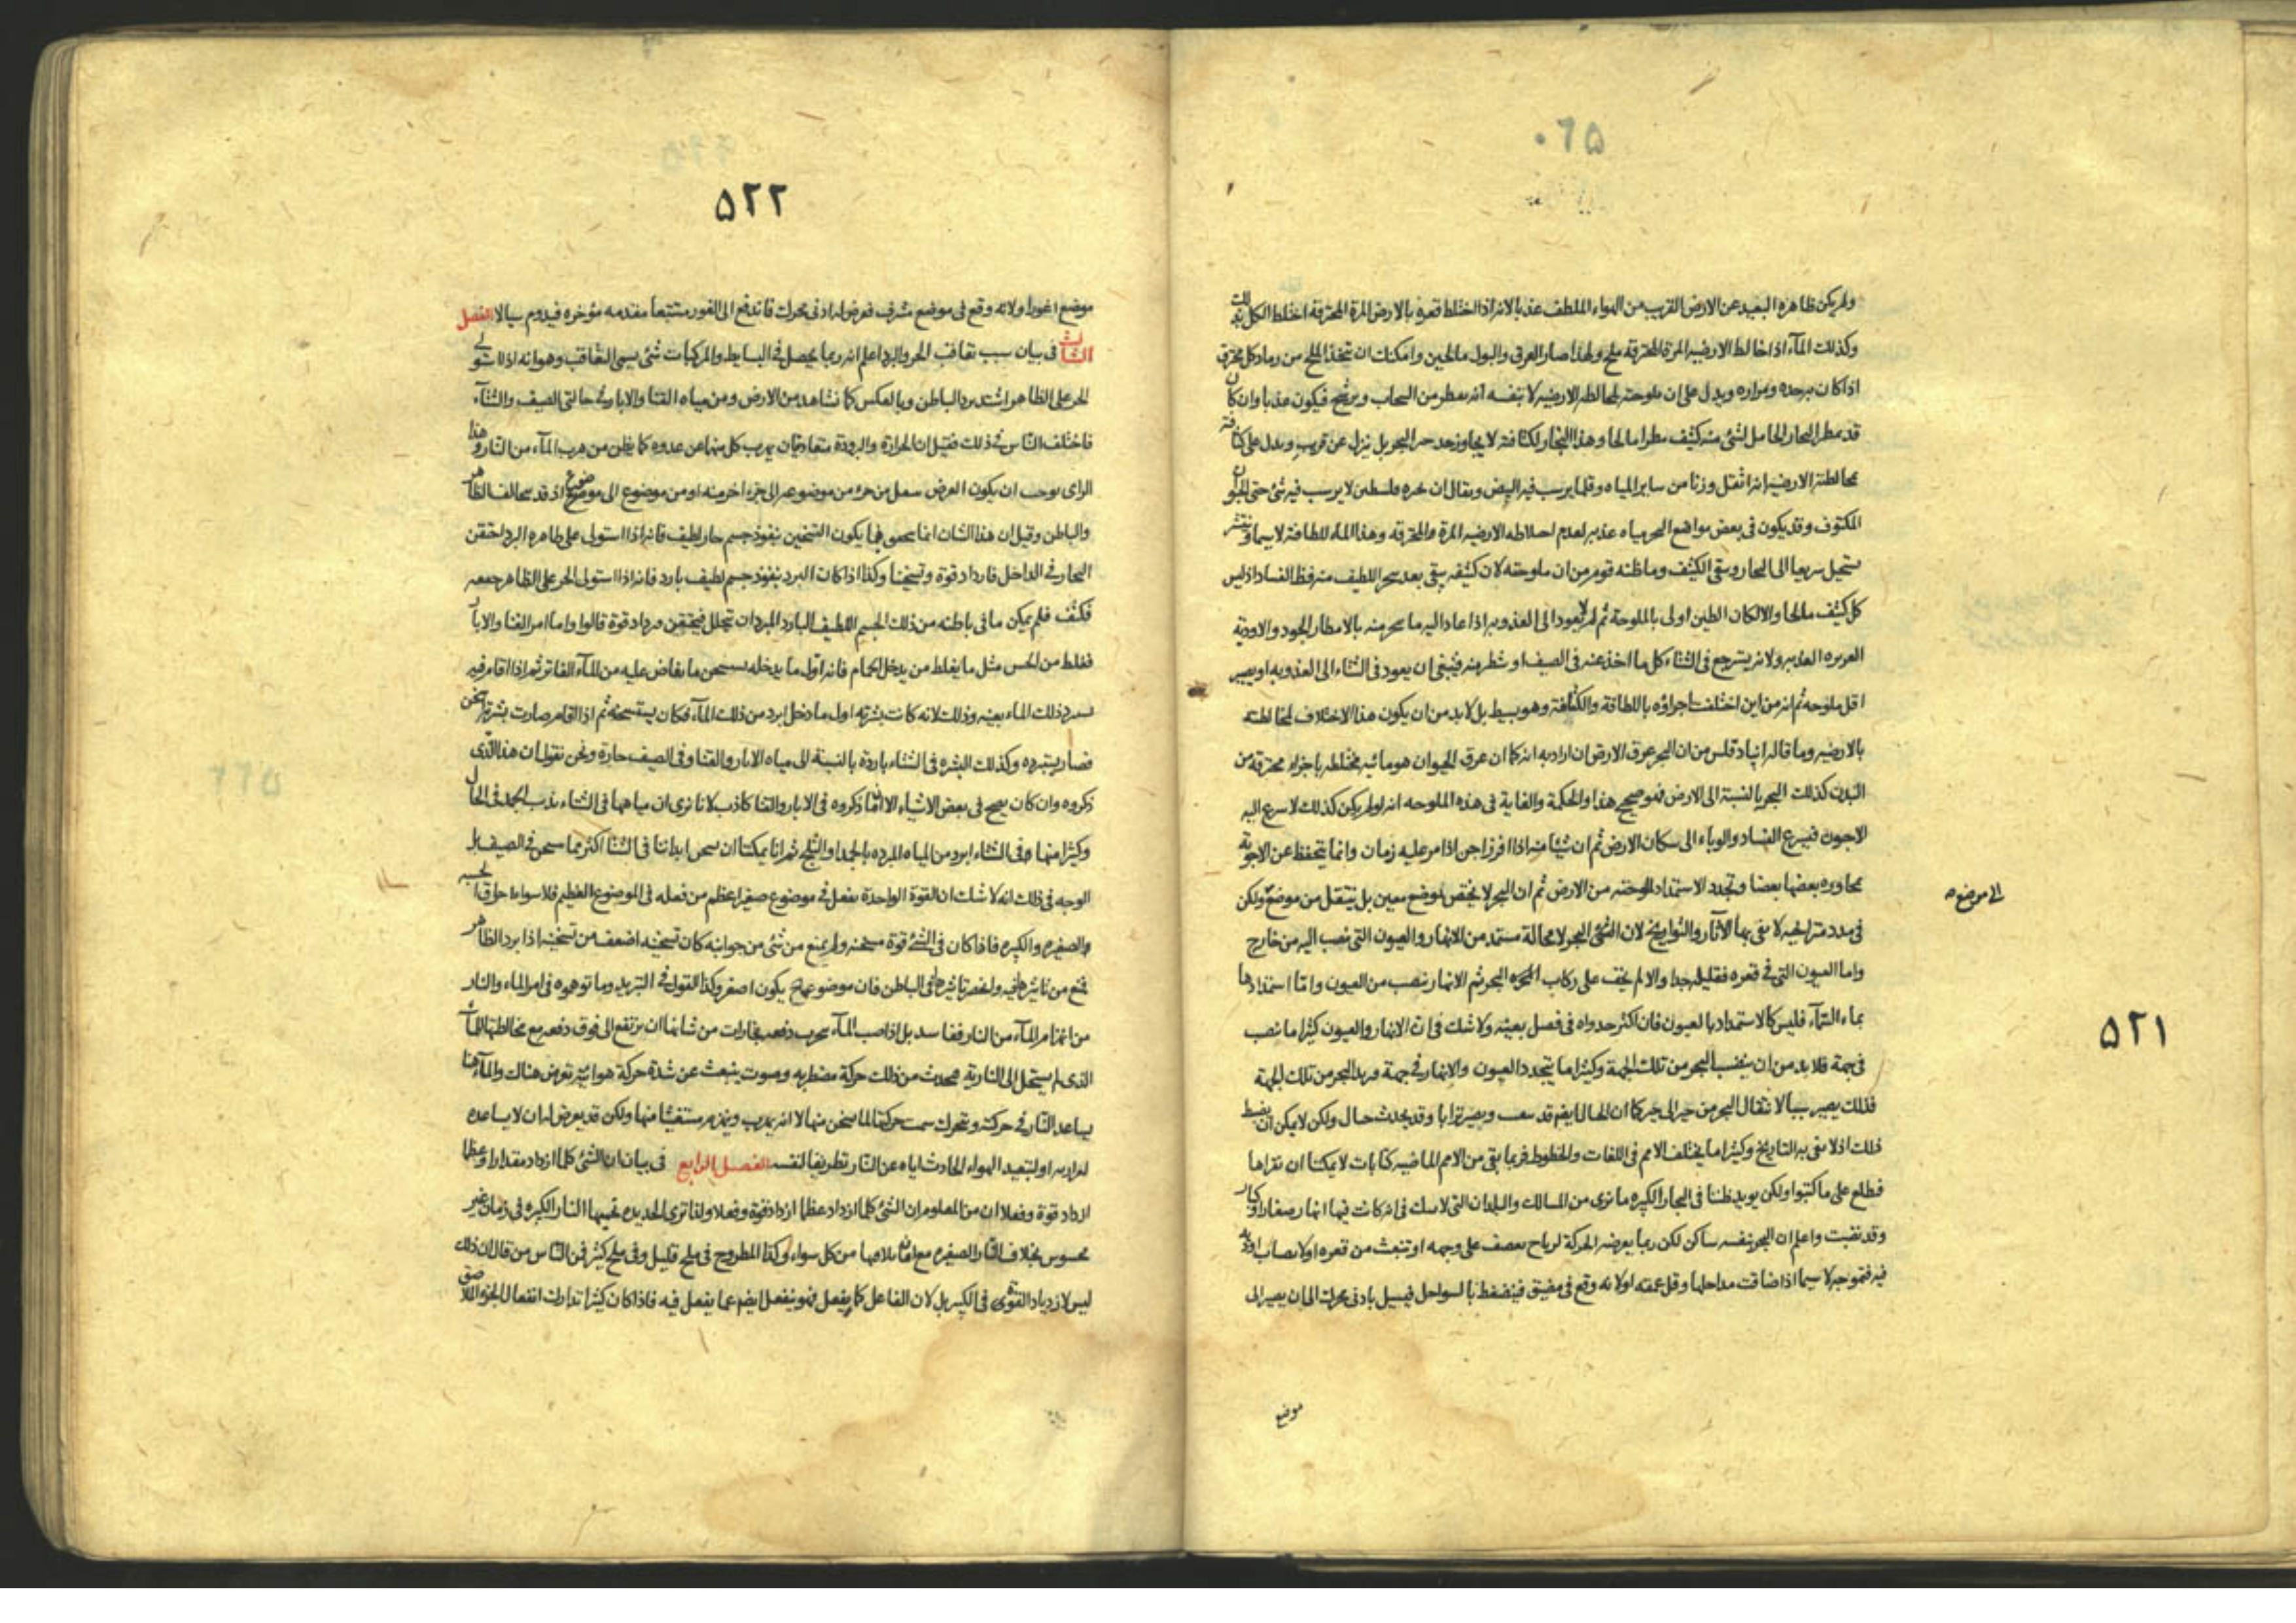 ٥٢١
ولم يكن ظاهره البعيد عن الارض القريب من الهواء الملطف عذبا لانه اذا اختلط قعره بالارض المرة المحترقة اختلط الكل
وكذلك المآء اذا خالط الارضيه المرة المحترقة ملح ولهذا صار العرق والبول مالحين وامكنك ان تتخذ الملح من رماد كل محترق
اذا كان ومراره ويدل على ان ملوحته لمخالطه الارضيه لا بنفسه انه يمطر من السحاب ويرشح فيكون عذبا وان كان
قد يمطر البخار الحامل لشئ منه كثيف مطرا مالحا وهذا البخار لكثافته لا يجاوز حد البحر بل ينزل عن قريب ويدل على كثافته
مخالطته الارضيه انه اثقل وزنا من ساير المياه وقلما يرسب فيه البيض ويقال ان بحره فلسطين لا يرسب فيه شئ حتى الحيوان
المكتوف وقد يكون في بعض مواضع البحر مياه عذبه لعدم اختلاطه الارضيه المرة والمحترقة وهذا الماء للطافته لا سيما
يستحيل سريعا الى البخار ويبقى الكثيف وما ظنه قوم من ان ملوحته لان كثيفه يبقى بعد تبخر اللطيف منه فظ الفساد اذ ليس
كل كثيف مالحا والا لكان الطين اولى بالملوحة ثم لم لا يعود الى العذوبه اذا عاد اليه ما تبخر منه بالامطار الجود والاودية
الغزيره العذبه ولانه يسترجع في الشتاء كل ما اخذ عنه في الصيف او شطر منه فينبغى ان يعود في الشتاء الى العذوبه او يصير
اقل ملوحه ثم انه من اين اختلفت اجزاؤه باللطافة والكثافة وهو بسيط بل لا بد من ان يكون هذا الاختلاف لمخالطته
بالارضيه وما قاله انباد قلس من ان البحر عرق الارض ان اراد به انه كما ان عرق الحيوان هو مائيه مختلطه باجزاء محترقة من
البدن كذلك البحر بالنسبة الى الارض فهو صحيح هذا والحكمة والغاية في هذه الملوحه انه لو لم يكن كذلك لاسرع اليه
الاجون فيسرع الفساد والوباء الى سكان الارض ثم ان شيئا منه اذا افرز اجن اذا مر عليه زمان وانما يتحفظ عن الاجون
بمجاوره بعضها بعضا وتجدد الاستمداد للوحته من الارض ثم ان البحر لا يختص لموضع معين بل ينتقل من موضع ولكن
الى موضع ص
في مدد متراخيه لا يفى بها الآثار والتواريخ لان البحر لا محالة مستمد من الانهار والعيون التى تصب اليه من خارج
واما العيون التى في قعره فقليله جدا والا لم يخف على ركاب البحر ثم الانهار تنصب من العيون واما استمدادها
بماء السماء فليس كالاستمداد بالعيون فان اكثر جدواه في فصل بعينه ولا شك في ان الانهار والعيون كثيرا ما تصب
في جهة فلا بد من ان ينضب البحر من تلك الجهة وكثيرا ما يتجدد العيون والانهار في جهة البحر من تلك الجهة
فذلك يصير سببا لانتقال البحر من حيز الى حيز كما ان الجبال ايضم قد وبصير ترابا وقد يحدث جبال ولكن لا يمكن ان يضبط
ذلك اذ لا يفى به التاريخ وكثيرا ما يختلف الامم في اللغات والخطوط فربما بقى من الامم الماضيه كتابات لا يمكننا ان نقراها
فنطلع على ما كتبوا ولكن يويد ظننا في البحار الكبيره ما نرى من المسالك والبلدان التى لا شك في انه كانت فيها انهار صغار او كبار
وقد نضبت واعلم ان البحر بنفسه ساكن لكن ربما يعرضه الحركة لرياح تعصف على وجهه او تنبعث من قعره او لانصاب اوديه
فيه فتموجه لا سيما اذا ضاقت مداخلها وقل عمقه او لانه وقع في مضيق فينضغط بالسواحل فيسيل بادنى محرك الى ان يصير الى
موضع
٥٢٢
موضع اغورا ولانه وقع في موضع مشرف فعرض له ادنى محرك فاندفع الى الغور مستتبعا مقدمه مؤخره فيدوم سيالا الفصل
الثالث في بيان سبب تعاقب الحر والبرد اعلم انه ربما يحصل في البسايط والمركبات شئ يسمى التعاقب وهو انه اذا استولى
الحر على الظاهر اشتد برد الباطن وبالعكس كما نشاهد من الارض ومن مياه القنا والابار في حالتى الصيف والشتآء
فاختلف الناس في ذلك فقيل ان الحرارة والبرودة متعاديان يهرب كل منهما عن عدوه كما يظن من هرب المآء من النار وهذا
الراى يوجب ان يكون العرض ينتقل من جزء من موضوعه الى جزء اخر منه او من موضوع الى موضوع اذ قد يتخالف الظاهر
والباطن وقيل ان هذا الشان انما فيما يكون التسخين بنفوذ جسم حار لطيف فانه اذا استولى على ظاهره البرد احتقن
البخار في الداخل فازداد قوة وتسخينا وكذا اذا كان البرد بنفوذ جسم لطيف بارد فانه اذا استولى الحر على الظاهر جمعه
فكثف فلم يمكن ما في باطنه من ذلك الجسم اللطيف البارد المبرد ان يتحلل فيحتقن فيزداد قوة قالوا واما امر القنا والابار
فغلط من الحس مثل ما يغلط من يدخل الحمام فانه اول ما يدخله يستسخن ما يفاض عليه من المآء الفاتر ثم اذا اقام فيه
يستبرد ذلك الماء بعينه وذلك لانه كانت بشرته اول ما دخل ابرد من ذلك المآء فكان يستسخنه ثم اذا اقام صارت بشرته اسخن
فصار يستبرده وكذلك البشره في الشتاء باردة بالنسبة الى مياه الابار والقنا وفي الصيف حارة ونحن نقول ان هذا الذى
ذكروه وان كان يصح في بعض الاشياء الا ان ما ذكروه في الابار والقنا كاذب لانا نرى ان مياهها في الشتاء يذيب الجمد في الحال
وكثيرا منها في الشتاء ابرد من المياه المبرده بالجمد او الثلج ثم انا يمكننا ان نسخن ابداننا في الشتا اكثر مما نسخن في الصيف بل
الوجه في ذلك انه لا شك ان القوة الواحدة يفعل في موضوع صغير اعظم من فعله في الموضوع العظيم فلا سواء
الصغيره والكبيره فاذا كان في الشئ قوة مسخنه ولم يمنع من شئ من جوانبه كان تسخينه اضعف من تسخينه اذا برد الظاهر
فمنع من تاثيرها فيه وانحصر تاثيرها في الباطن فان موضوعه يكون اصغر وكذا القول في التبريد وما توهموه في امر الماء والنار
من انهزام المآء من النار ففاسد بل اذا صب المآء يحدث دفعه بخارات من شانها ان ترتفع الى فوق دفعه مع مخالطتها المآء
الذى لم يستحل الى النارية فيحدث من ذلك حركة مضطربه وصوت ينبعث عن شدة حركة هوائيه تعرض هناك والمآء هنا
يساعد النار في حركته وتحرك سمت حركتها لما سخن منها لا انه يهرب وينهزم مستغيثا منها ولكن قد يعرض له ان لا يساعده
او لتبعيد الهواء الحادث اياه عن النار تطريقا لنفسه الفصل الرابع في بيان ان الشئ كلما ازداد مقدارا وعظما
ازداد قوة وفعلا ان من المعلوم ان الشئ كلما ازداد عظما ازداد قوة وفعلا ولذا ترى الحديده تحميها النار الكبيره في زمان غير
محسوس بخلاف النار الصغيره مع ان من كل سواء وكذا المطروح في ملح قليل وفي ملح كثير فمن الناس من قال ان ذلك
ليس لازدياد القوة في الكبير بل لان الفاعل كما يفعل فهو ينفعل ايضم عما يفعل فيه فاذا كان كثيرا تدارك انفعال الجزء الملاصق